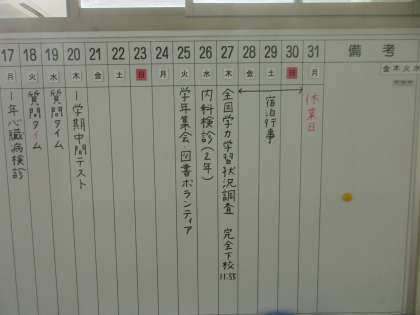 17 18 19 20 21 22 23 24 25 26 27 28 29 30 31 備考
月 火 水 木 金 土 日 月 火 水 木 金 土 日 月
金木火水
1年心臓病検診
質問タイム
質問タイム
1学期中間テスト
学年集会 図書ボランティア
内科検診(2年)
全国学力学習状況調査 完全下校 11:55
宿泊行事
休業日